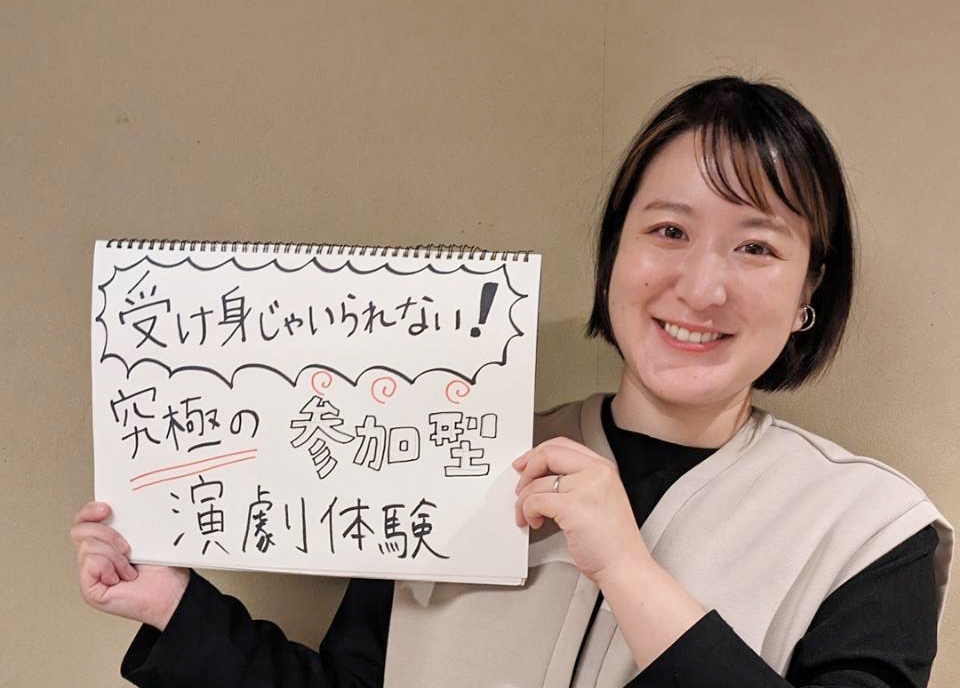 受け身じゃいられない!
究極の参加型
演劇体験